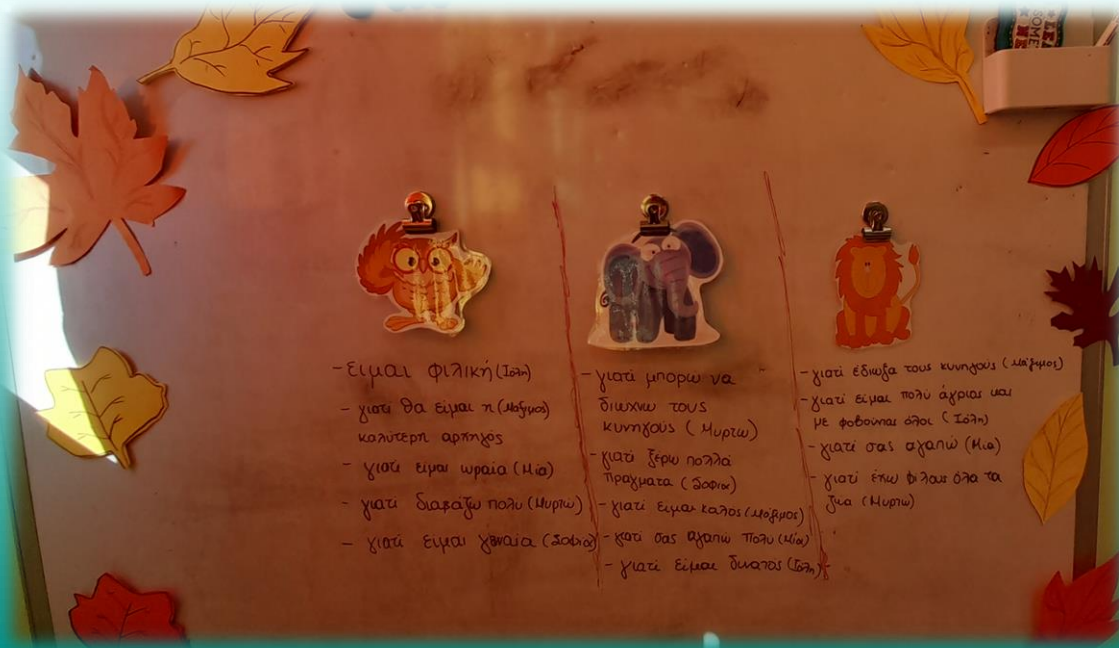 -ειμαι φιλική (Ιόλη)
- γιατι θα είμαι η (Μάξιμος)
καλύτερη αρχηγός
- γιατί ειμαι ωραία (Μία)
- γιατί διαβάζω πολυ (Μυρτώ)
- γιατί ειμαι γενναία (Σοφία)
-γιατί μπορω να
διωχνω τους
κυνηγούς (Μυρτω)
-γιατί ξέρω πολλά
πραγματα (Σοφια)
- γιατί είμαι καλος (Μάξιμος)
- γιατί σας αγαπω πολυ (Μία)
- γιατί είμαι δυνατός (Ιόλη)
- γιατί έδιωξα τους κυνηγούς (Μάξιμος)
-γιατί είμαι πολύ άγριος και
με φοβούνται όλοι (Ιόλη)
-γιατί σας αγαπώ (Μία)
- γιατί έχω φίλους όλα τα
ζώα (Μυρτώ)